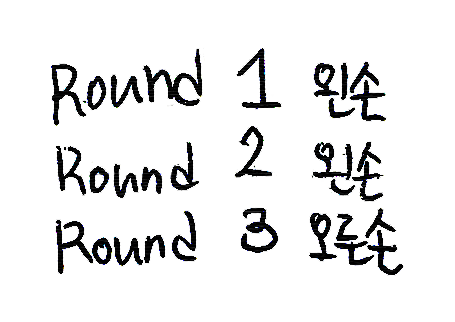 Round 1 왼손
Round 2 왼손
Round 3 오른손